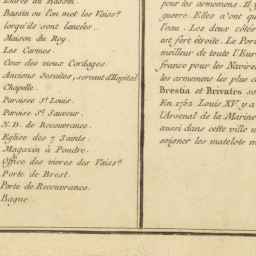 Bassin ou l'on met les Vaiss.x
lorsqu'ils sont lancées.
Maison du Roy.
Les Carmes.
Cour des vieux Cordages.
Anciens Jesuites, servant d'Hopital
Chapelle.
Paroisse S.t Louis.
Paroisse S.t Sauveur.
N. D. de Recouvrance.
Eglise des 7 Saints.
Magazin à Poudre.
Office des vivres des Vaiss.x
Porte de Brest.
Porte de Recouvrance.
Bagne.
pour les armemens. Il y
guerre. Elles n'ont qu
l'eau. Les deux côtés
est fort étroite. Le Por
meilleur de toute l'Eur
france pour les Navires
les armemens les plus c
Brestia et Brivates so
En 1752 Louis XV y a
l'Arsenal de la Marine
aussi dans cette ville u
soigner les matelots m